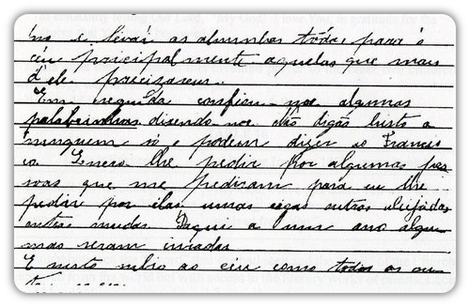 no e levai as alminhas todas para o
céu principalmente aquelas que mais
d'ele precizarem.
Em seguida confiou-nos algumas
palabrinhas disendo-nos Não digão histo a
ninguem só o podem dizer ao Francis
co. lhe pedir por algumas pes
soas que me pediram para eu lhe
pedir por elas umas cegas outras aleijadas
outras mudas. Daqui a um ano algu-
mas seram curadas
E nisto subio ao ceu como todos os ou